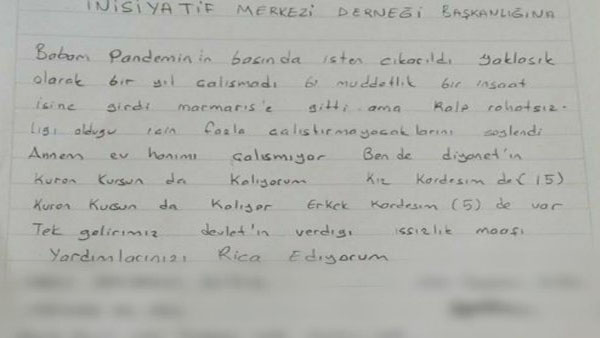 İNİSİYATİF MERKEZİ DERNEĞİ BAŞKANLIĞINA
Babam Pandeminin basında isten cıkarıldı yaklasık
olarak bir yıl calısmadı bi muddetlik bir insaat
isine girdi marmaris'e gitti ama Kalp rahatsız-
lıgı oldugu icin fazla calıstırmayacaklarını soylendi
Annem ev hanımı calısmıyor Ben de diyanet'in
Kuran Kursun da Kalıyorum Kız Kardesim de (15)
Kuran Kursun da Kalıyor Erkek Kardesim (5) de var
Tek gelirimiz devlet'in verdigi issizlik maası
Yardımlarınızı Rica Ediyorum